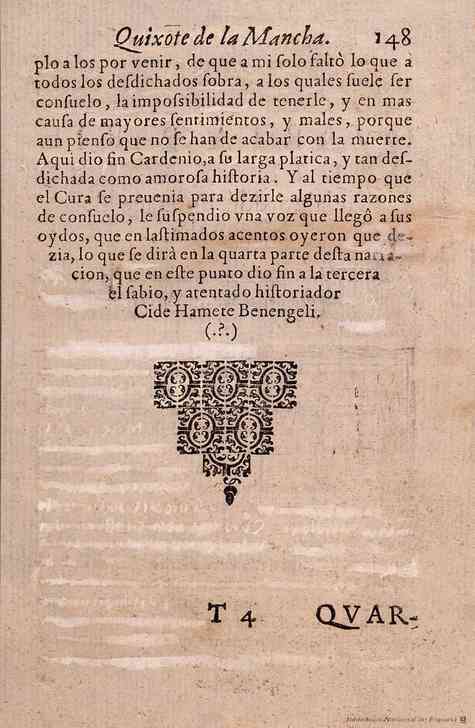 Quixote de la Mancha. 148
plo a los por venir, de que a mi solo faltò lo que a
todos los desdichados sobra, a los quales suele ser
consuelo, la impossibilidad de tenerle, y en mas
causa de mayores sentimientos, y males, porque
aun pienso que no se han de acabar con la muerte.
Aqui dio fin Cardenio, a su larga platica, y tan des-
dichada como amorosa historia. Y al tiempo que
el Cura se preuenia para dezirle algunas razones
de consuelo, le suspendio vna voz que llegô a sus
oydos, que en lastimados acentos oyeron que de-
zia, lo que se dirà en la quarta parte desta narra-
cion, que en este punto dio fin a la tercera
el sabio, y atentado historiador
Cide Hamete Benengeli.
(.?.)
T 4 QVAR-
Biblioteca Nacional de España